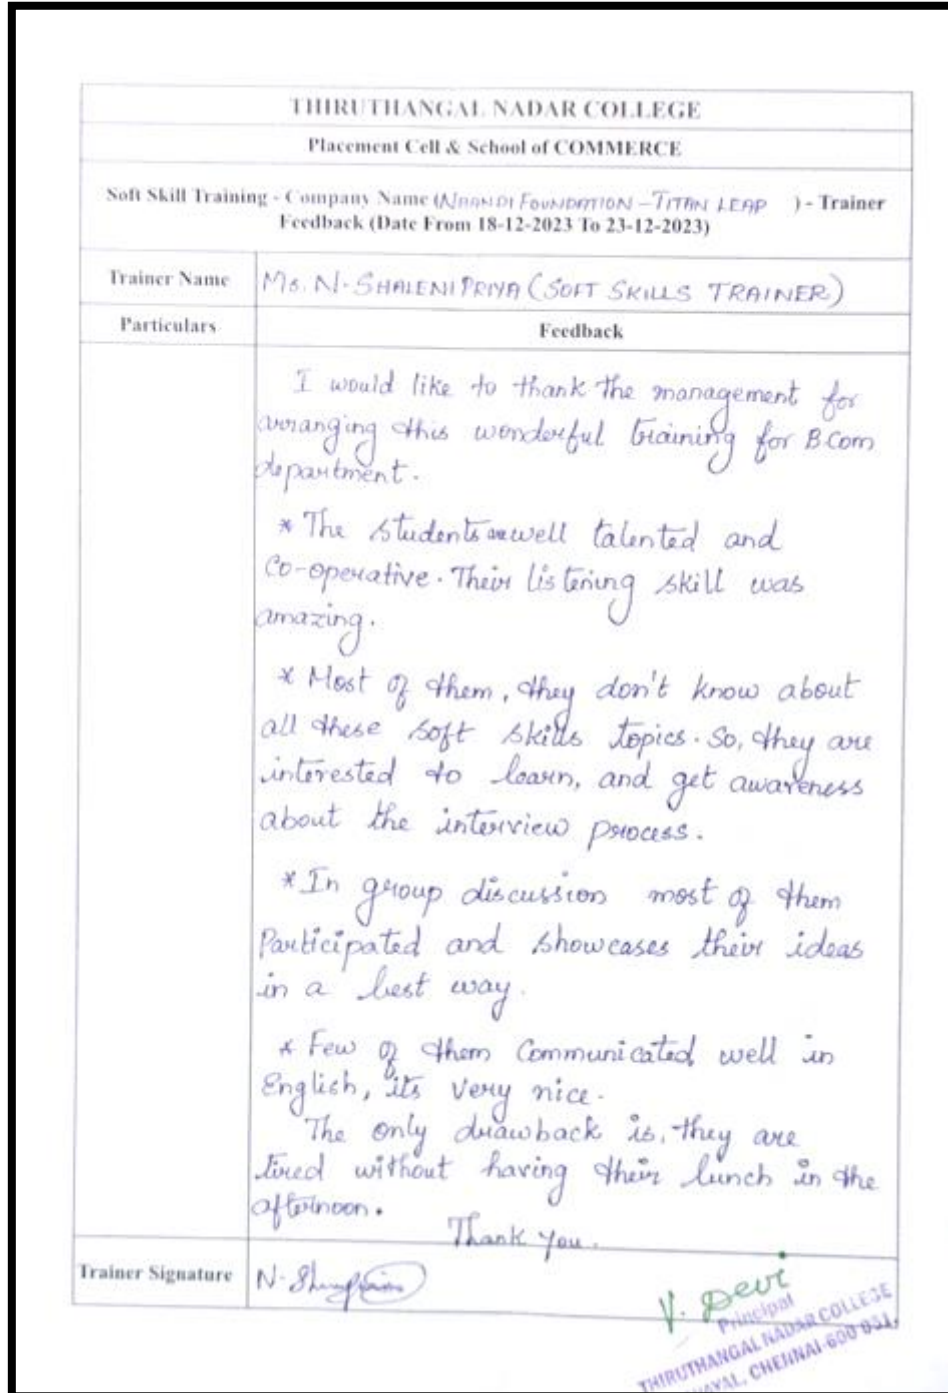 THIRUTHANGAL NADAR COLLEGE
Placement Cell & School of COMMERCE
Soft Skill Training - Company Name (NAANDI FOUNDATION - TITAN LEAP ) - Trainer
Feedback (Date From 18-12-2023 To 23-12-2023)
Trainer Name Ms. N. SHALENIPRIYA (SOFT SKILLS TRAINER)
Particulars Feedback
I would like to thank the management for
arranging this wonderful training for B.Com
department.
* The students are well talented and
Co-operative. Their listening skill was
amazing.
* Most of them, they don't know about
all these soft skills topics. So, they are
interested to learn, and get awareness
about the interview process.
* In group discussion most of them
Participated and showcases their ideas
in a best way.
* Few of them Communicated well in
English, its very nice.
The only drawback is, they are
tired without having their lunch in the
afternoon.
Thank you.
Trainer Signature N.
V. Devi
Principal
THIRUTHANGAL NADAR COLLEGE
CHENNAI-600 051.